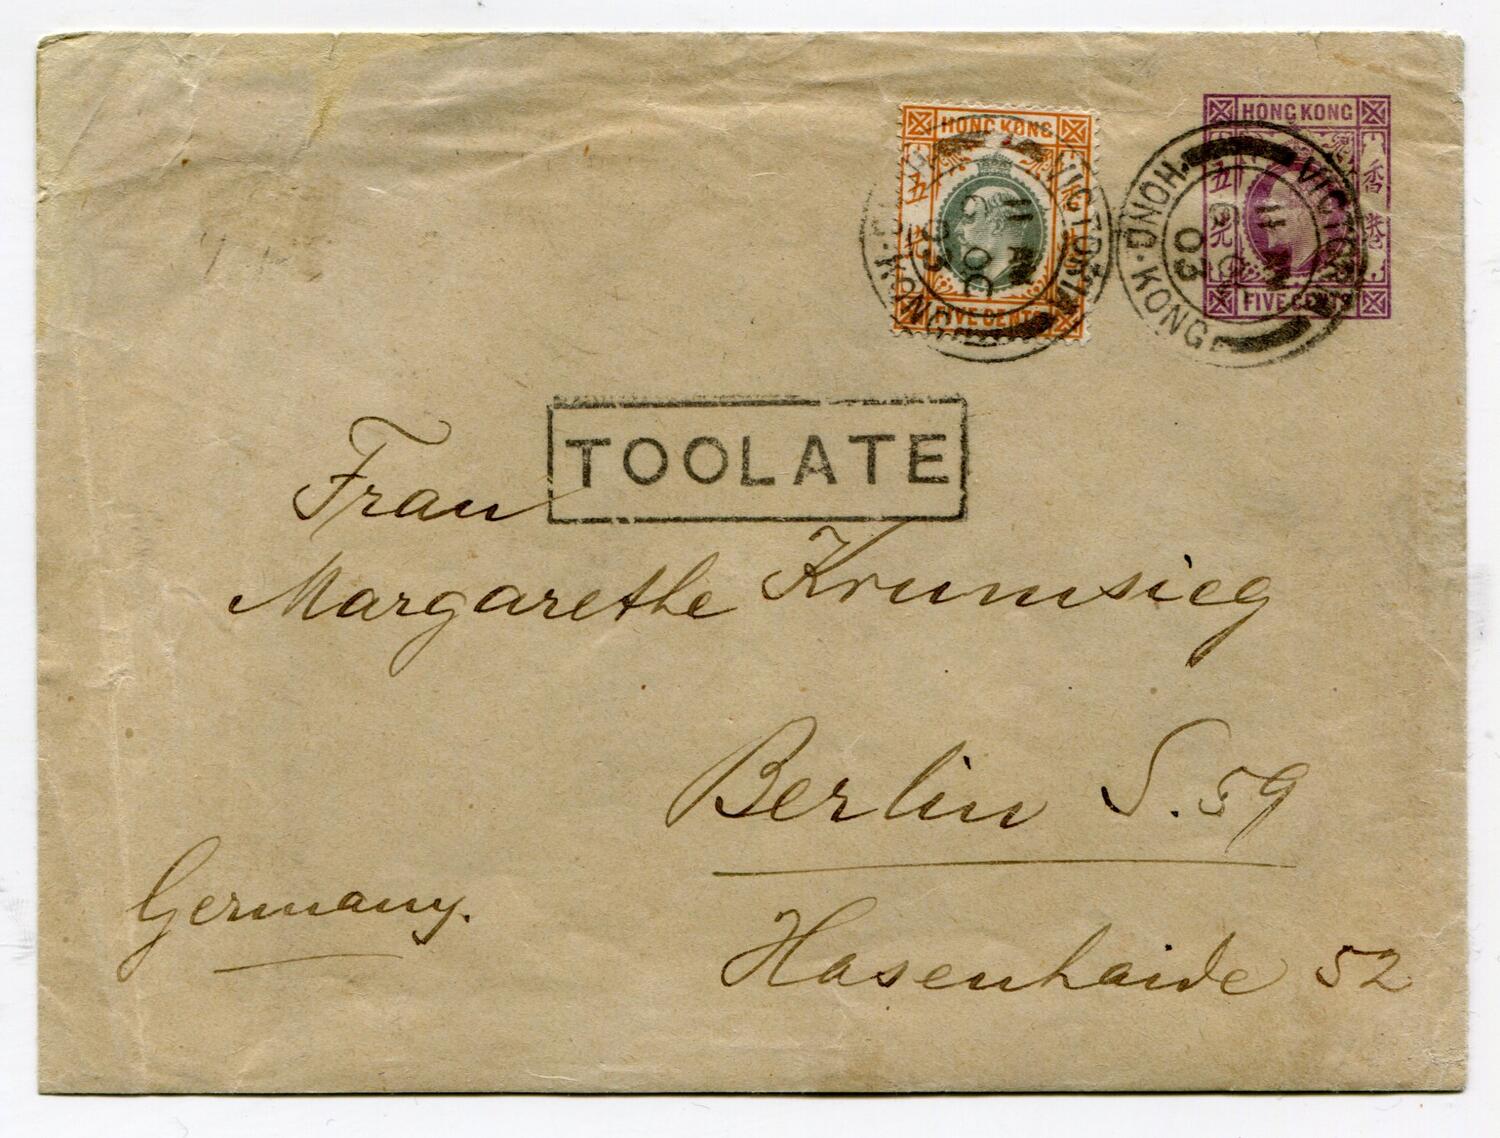 HONG KONG
五
FIVE CENTS
VICTORIA
HONG·KONG
11 AM
9 OC
03
HONG KONG
五
香
港
FIVE CENTS
VICTORIA
HONG·KONG
11 AM
9 OC
03
TOOLATE
Frau
Margarethe Krumsieg
Berlin S. 59
Germany.
Hasenhaide 52